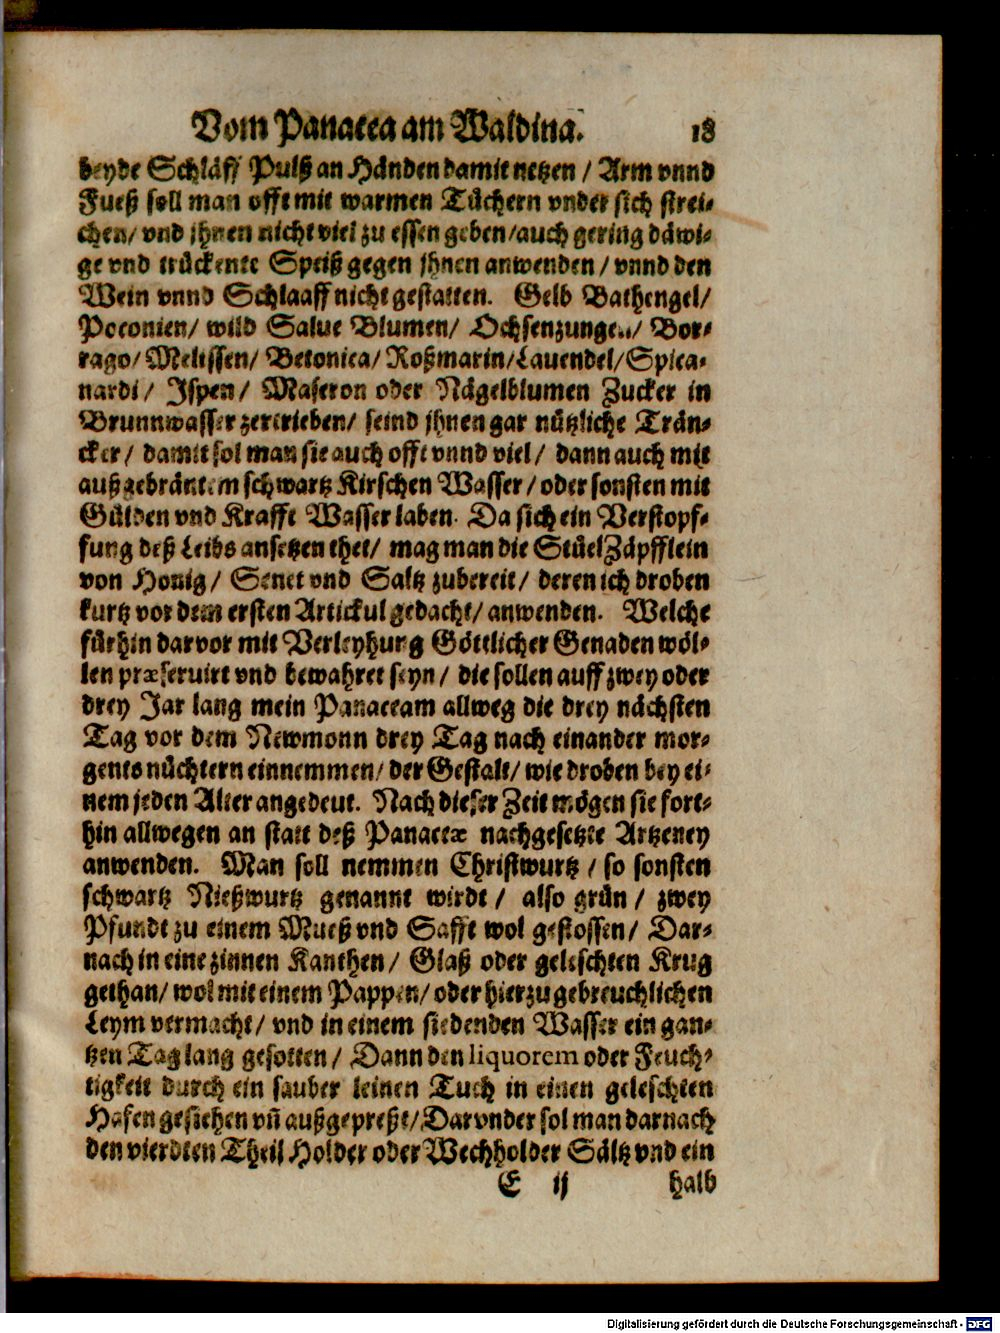 Vom Panacea am Waldina. 18
beyde Schläff Pulß an Händen damit netzen / Arm vnnd
Fueß soll man offt mit warmen Tüchern vnder sich strei-
chen / vnd jhnen nicht viel zu essen geben / auch gering däwi-
ge vnd trückente Speiß gegen jhnen anwenden / vnnd den
Wein vnnd Schlaaff nicht gestatten. Gelb Bathengel /
Poeonien / wild Salue Blumen / Ochsenzungen / Bor-
rago / Melissen / Betonica / Roßmarin / Lauendel / Spica-
nardi / Jspen / Maseron oder Nägelblumen Zucker in
Brunnwasser zertrieben / seind jhnen gar nützliche Trän-
cker / damit sol man sie auch offt vnnd viel / dann auch mit
außgebräntem schwartz Kirschen Wasser / oder sonsten mit
Gülden vnd Krafft Wasser laben. Da sich ein Verstopf-
fung deß Leibs ansetzen thet / mag man die Stüel Zäpfflein
von Honig / Senet vnd Saltz zubereit / deren ich droben
kurtz vor dem ersten Artickul gedacht / anwenden. Welche
fürhin darvor mit Verleyhurg Göttlicher Genaden wöl-
len præservirt vnd bewahret seyn / die sollen auff zwey oder
drey Jar lang mein Panaceam allweg die drey nächsten
Tag vor dem Newmonn drey Tag nach einander mor-
gents nüchtern einnemmen / der Gestalt / wie droben bey ei-
nem jeden Alter angedeut. Nach dieser Zeit mögen sie fort-
hin allwegen an statt deß Panaceæ nachgesetzte Artzeney
anwenden. Man soll nemmen Christwurtz / so sonsten
schwartz Nießwurtz genannt wirdt / also grün / zwey
Pfundt zu einem Mueß vnd Safft wol gestossen / Dar-
nach in eine zinnen Kanthen / Glaß oder geleschten Krug
gethan / wol mit einem Pappen / oder hierzu gebreuchlichen
Leym vermacht / vnd in einem siedenden Wasser ein gan-
tzen Tag lang gesotten / Dann den liquorem oder Feuch-
tigkeit durch ein sauber leinen Tuch in einen geleschten
Hafen gesiehen vñ außgepreßt / Darvnder sol man darnach
den vierdten Theil Holder oder Wechholder Sältz vnd ein
E ij halb
Digitalisierung gefördert durch die Deutsche Forschungsgemeinschaft - DFG